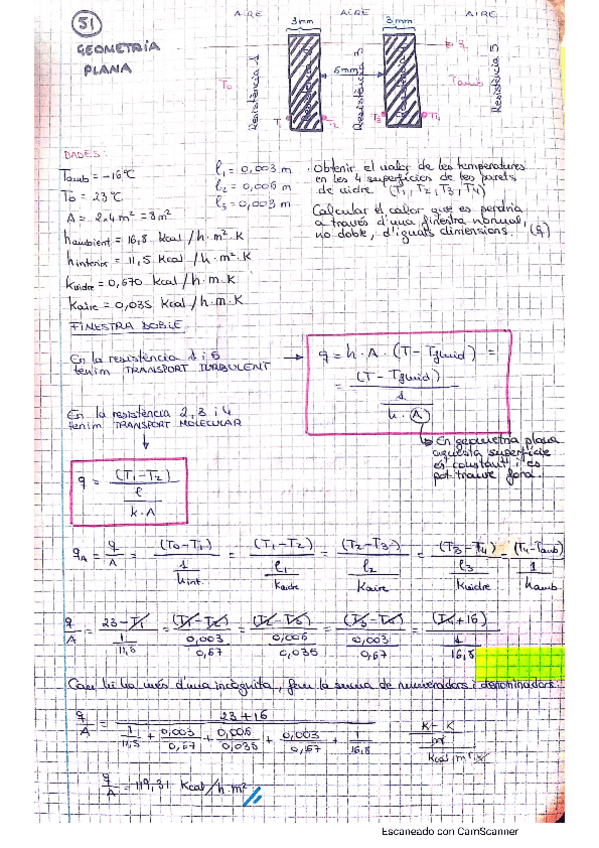 51
GEOMETRIA
PLANA
AIRE AIRE AIRE
3mm 3mm
6mm
Resistència 1
Resistència 3
Resistència 5
T0
T2
T3
T4
Tamb
q
DADES:
Tamb = -16ºC
T0 = 23ºC
A = 2.4 m² = 8m²
hambient = 16,8 Kcal/h·m²·K
hinterior = 11,5 Kcal/h·m²·K
kvidre = 0,670 Kcal/h·m·K
kaire = 0,035 Kcal/h·m·K
l1 = 0,003 m
l2 = 0,006 m
l3 = 0,003 m
· Obtenir el valor de les temperatures
en les 4 superfícies de les parets
de vidre (T1, T2, T3, T4)
Calcular el calor que es perdria
a través d'una finestra normal,
no doble, d'iguals dimensions. (q)
FINESTRA DOBLE
En la resistència 1 i 5
tenim TRANSPORT TURBULENT
q = h·A·(T-Tfluid) =
= (T-Tfluid)
1
h·A
En la resistència 2, 3 i 4
tenim TRANSPORT MOLECULAR
En geometria plana
aquesta superfície
és constant i es
pot traure fora.
q = (T1-T2)
l
k·A
qA = q/A = (T0-T1) / (1/hint.) = (T1-T2) / (l1/kvidre) = (T2-T3) / (l2/kaire) = (T3-T4) / (l3/kvidre) = (T4-Tamb) / (1/hamb)
q/A = 23-T1 / (1/11,5) = (T1-T2) / (0,003/0,67) = (T2-T3) / (0,006/0,035) = (T3-T4) / (0,003/0,67) = (T4+16) / (1/16,8)
Com hi ha més d'una incògnita, fem la suma de numeradors i denominadors:
q/A = 23+16 / (1/11,5 + 0,003/0,67 + 0,006/0,035 + 0,003/0,67 + 1/16,8)
q/A = 119,31 Kcal/h·m²
Escaneado con CamScanner